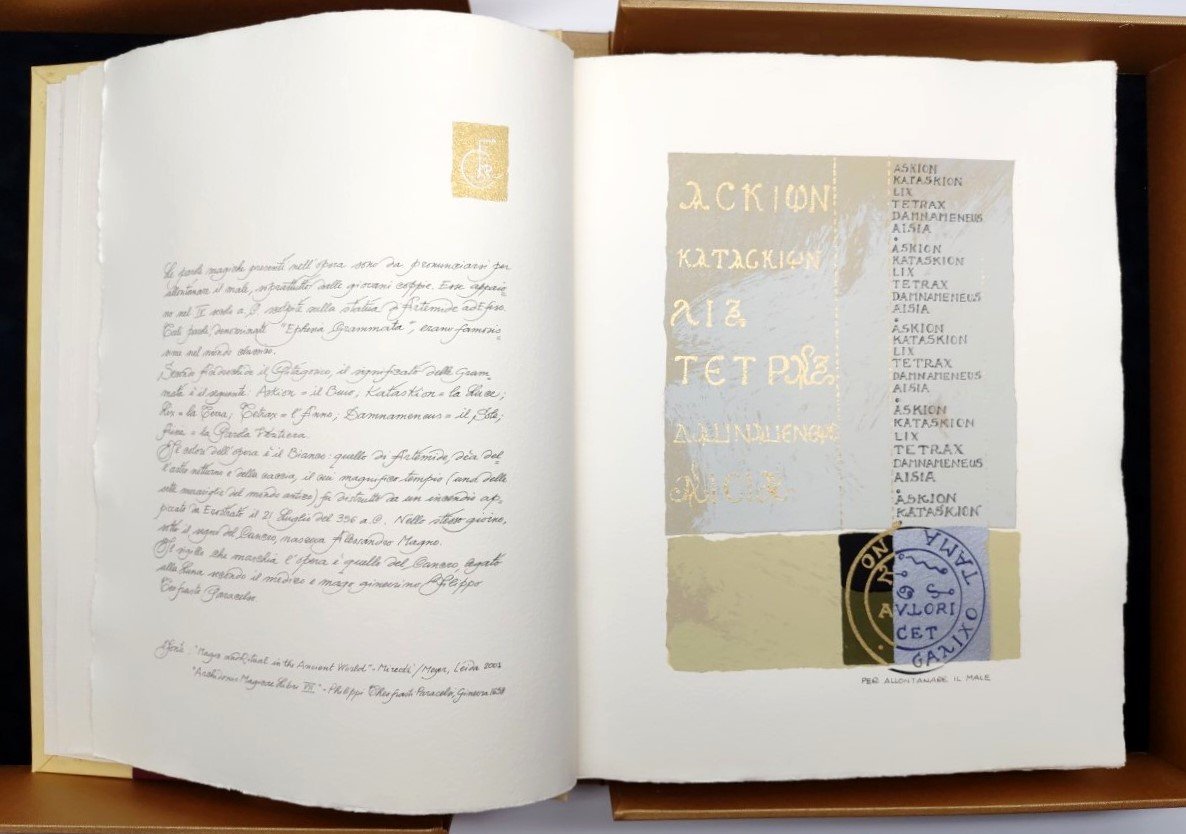 Le parole magiche presenti nell'opera sono da pronunciarsi per
allontanare il male, soprattutto dalle giovani coppie. Esse appaio=
no nel IV secolo a.C. scolpite nella statua di Artemide ad Efeso.
Tali parole denominate "Ephesia Grammata", erano famosis=
sime nel mondo classico.
Secondo Androchide il Pitagorico, il significato delle Gram=
mata è il seguente: Askion = il Buio; Kataskion = la Luce;
Lix = la Terra; Tetrax = l'Anno; Damnameneus = il Sole;
Aisia = la Parola Veritiera.
Il colore dell'opera è il Bianco: quello di Artemide, dea del=
l'astro notturno e della caccia, il cui magnifico tempio (una delle
sette meraviglie del mondo antico) fu distrutto da un incendio ap=
piccato da Erostrato il 21 Luglio del 356 a.C. Nello stesso giorno,
sotto il segno del Cancro, nasceva Alessandro Magno.
Il sigillo che macchia l'opera è quello del Cancro, legato
alla Luna secondo il medico e mago ginevrino, Filippo
Teofrasto Paracelso.
Fonti: "Magic and Ritual in the Ancient World" - Mirecki / Meyer, Leida 2001
"Archidoxis Magicae Libri VII" - Philippi Theofrasti Paracelsi, Ginevra 1658
ΑCΚΙΩΝ
ΚΑΤΑCΚΙΩΝ
ΛΙΞ
ΤΕΤΡΑΞ
ΔΑΜΝΑΜΕΝΕΥC
ΑΙCΙΑ
ASKION
KATASKION
LIX
TETRAX
DAMNAMENEUS
AISIA
ASKION
KATASKION
LIX
TETRAX
DAMNAMENEUS
AISIA
ASKION
KATASKION
LIX
TETRAX
DAMNAMENEUS
AISIA
ASKION
KATASKION
LIX
TETRAX
DAMNAMENEUS
AISIA
ASKION
KATASKION
TAMA
OXIVO
GAMIXO
AVLORI
CET
PER ALLONTANARE IL MALE